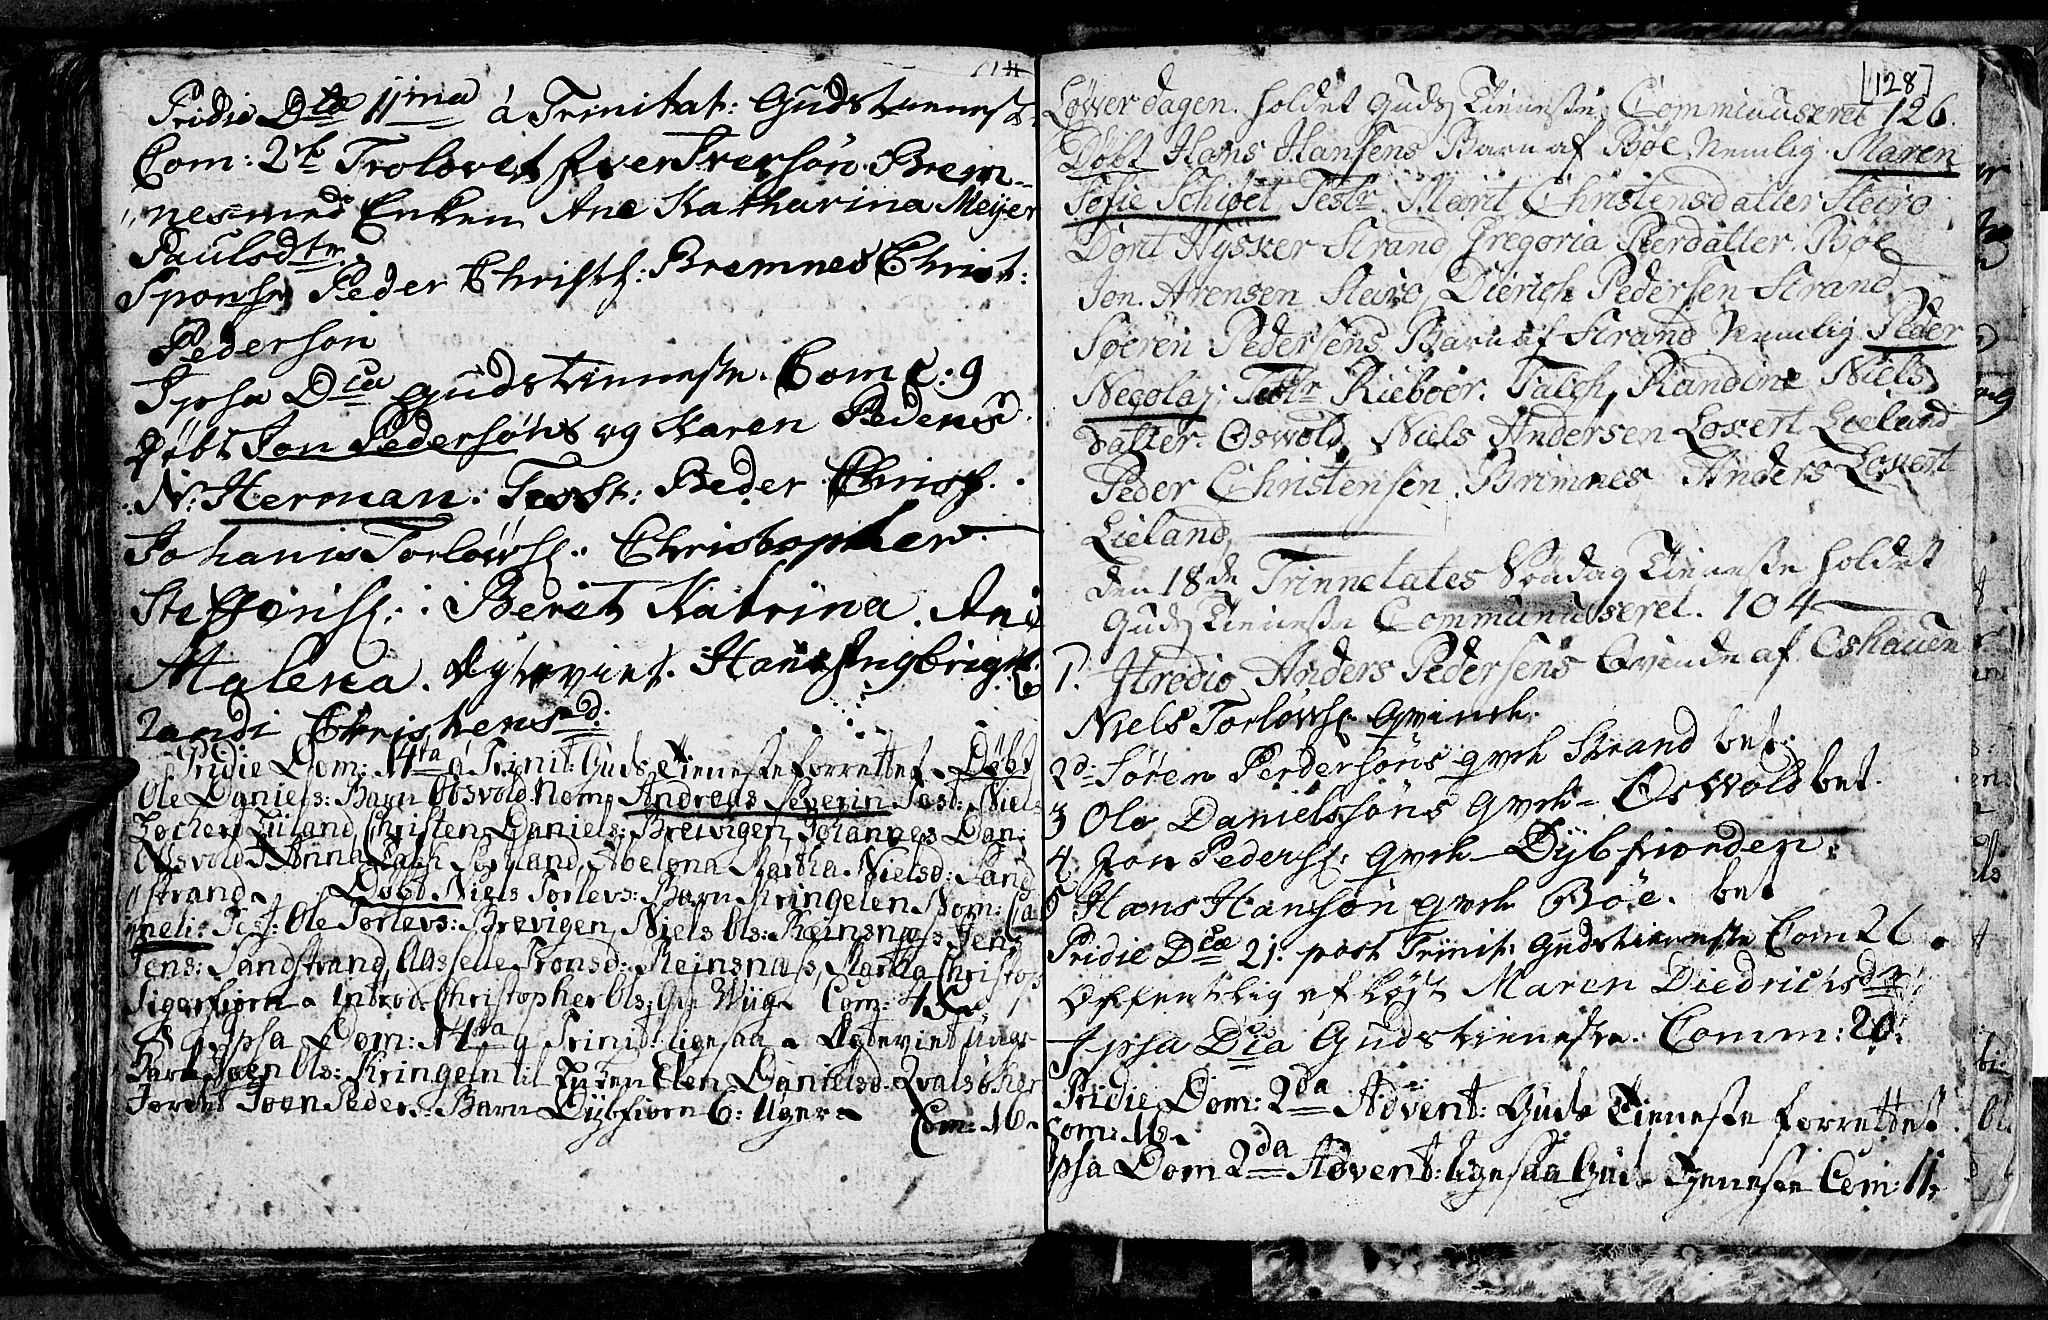 Pridie Dcæ 11ma á Trinitat: Gudstienest:
Com: 2. Trolovet Iver Iversön Brem-
nes med Enken Ane Katharina Meÿer
Paulsdtr.
Sponsr Peder Christs: Bremnes Christ:
Pedersön
Ipsa Dca Gudstienneste. Com: 9
Döbt Jon Pedersöns og Karen Pedersd
N. Herman. Test: Peder Christ.
Johanis Torlöws. Christopher
Steffens: Berit Katrina. Ane
Malena. Egteviet. Hans Ingbrigts
Randi Christensd:
Pridie Dom: 14ta á Trinit: Guds Tieneste forrettet. Döbt
Ole Daniels: Barn Oosvold Nom: Andreas Severin Test: Niels
Lochert Liland, Christen Daniels: Breivigen, Johannes Dan:
Oosvold, Anna Falch Liland, Abelona Martha Nielsd: Sand
strand. Döbt Niels Torlevs: Barn Kringelen Nom: Cor
neli: Test: Ole Torlevs: Brevigen, Niels Ols: Reinsnæss, Jens
Jens: Sandstrand, Aasselle Tronsd: Reinsnæss, Martha Christop
Sigerfiorn. Introd. Christopher Ols: Viig. Com: 45.
Ipsa Dom: 14ta á Trinit: ligesaa. Egteviet Ungs
Karl Joen Ols: Kringeln til Pigen Elen Danielsd: Qvalsö her
Jordet Joen Peders: Barn Dÿbfiorn 6: Uger. Com: 16.
[128]
Löwerdagen holdet Guds Tieneste Communiseret 126.
Döbt Hans Hansens Barn af Böe Nemlig Maren
Sofie Schiöet, Testr Marit Christensdatter Steiro
Dorit Hysker Strand Gregoria Peerdatter Böe
Jon Arensen Steiro, Dierich Pedersen Strand
Søeren Pedersens Barn af Strand Nemlig Peder
Necolaj: Testr Rieboer. Falch, Randine Niels
datter Oswold, Niels Andersen Loxert Lieland
Peder Christensen Brimnes Anders Loxert
Lieland
den 18de Trinnetates Söndag Tieneste holdet
Guds Tieneste Communiseret. 104
1. Itredic Anders Pedersens Qvinde af Oshauen
Niels Torlöws: Qvinde.
2d: Sören Perdersöns qvek Strand bet:
3 Ole Danielssöns Qvek Oswold bet.
4. Jon Peders: Qvek Dÿbfiorden.
5 Hans Hansön qvek Böe. bet
Pridie Dcæ 21. post Trinit: Gudstieneste Com 26
Offentlig afløst Maren Diedrichsdr
Ipsa Dca Gudstieneste. Comm: 20:
Pridie Dom: 2da Advent: Guds Tieneste forrettet.
Com: 16.
Ipsa Dom 2da Advent: ligesaa Guds Tjeneste Com: 11.